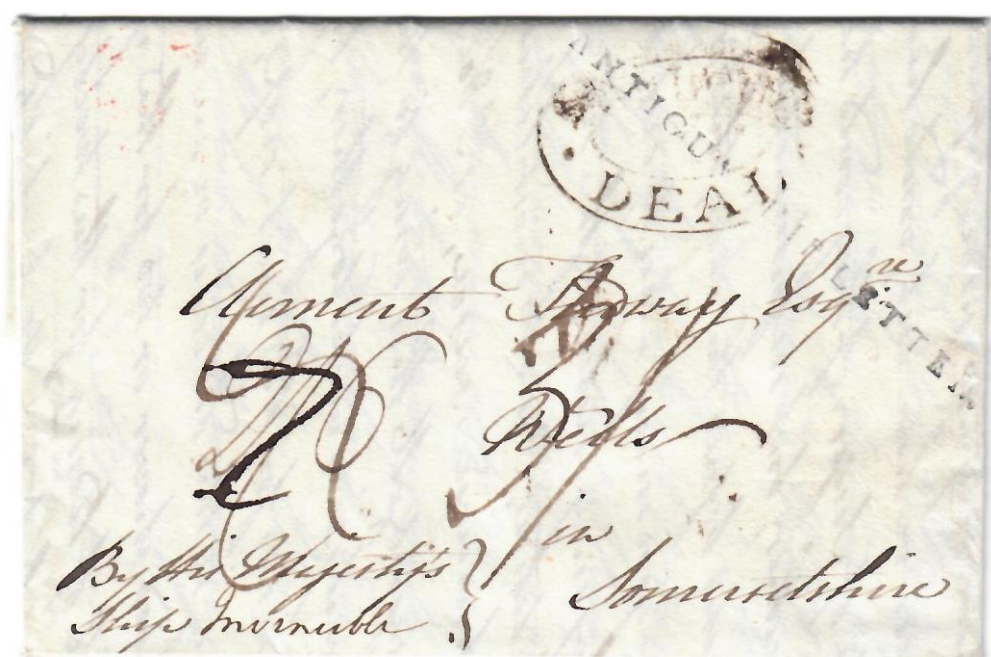 ANTIGUA
DEAL
LETTER
Clement Tudway Esqre
Wells
in
Somersetshire
By His Majestys
Ship Invincible